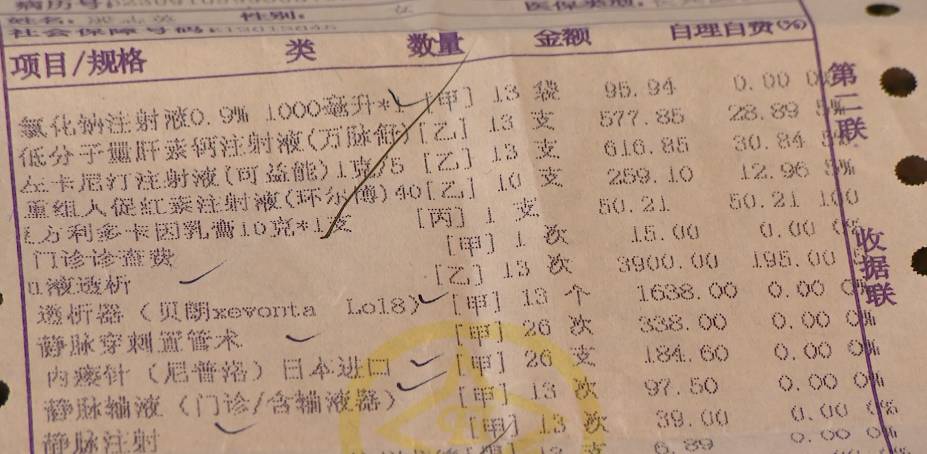 病历号:
姓名: 性别: 女 医保类型:
社会保障号码:
项目/规格 类 数量 金额 自理自费(%)
氯化钠注射液0.9% 1000毫升*1 [甲] 13 袋 95.94 0.00 0%
低分子量肝素钙注射液(万脉舒) [乙] 13 支 577.85 28.89 5%
左卡尼汀注射液(可益能)1克/5 [乙] 13 支 616.85 30.84 5%
重组人促红素注射液(环尔博)40 [乙] 10 支 259.10 12.96 5%
复方利多卡因乳膏10克*1支 [丙] 1 支 50.21 50.21 100
门诊诊查费 [甲] 1 次 15.00 0.00 0%
血液透析 [乙] 13 次 3900.00 195.00 5
透析器(贝朗xevonta Lo18) [甲] 13 个 1638.00 0.00 0%
静脉穿刺置管术 [甲] 26 次 338.00 0.00 0%
内瘘针(尼普洛)日本进口 [甲] 26 支 184.60 0.00 0%
静脉输液(门诊/含输液器) [甲] 13 次 97.50 0.00 0%
静脉注射 [甲] 13 次 39.00 0.00 0%
[甲] 13 支 6.89 0.00 0%
第二联
收据联